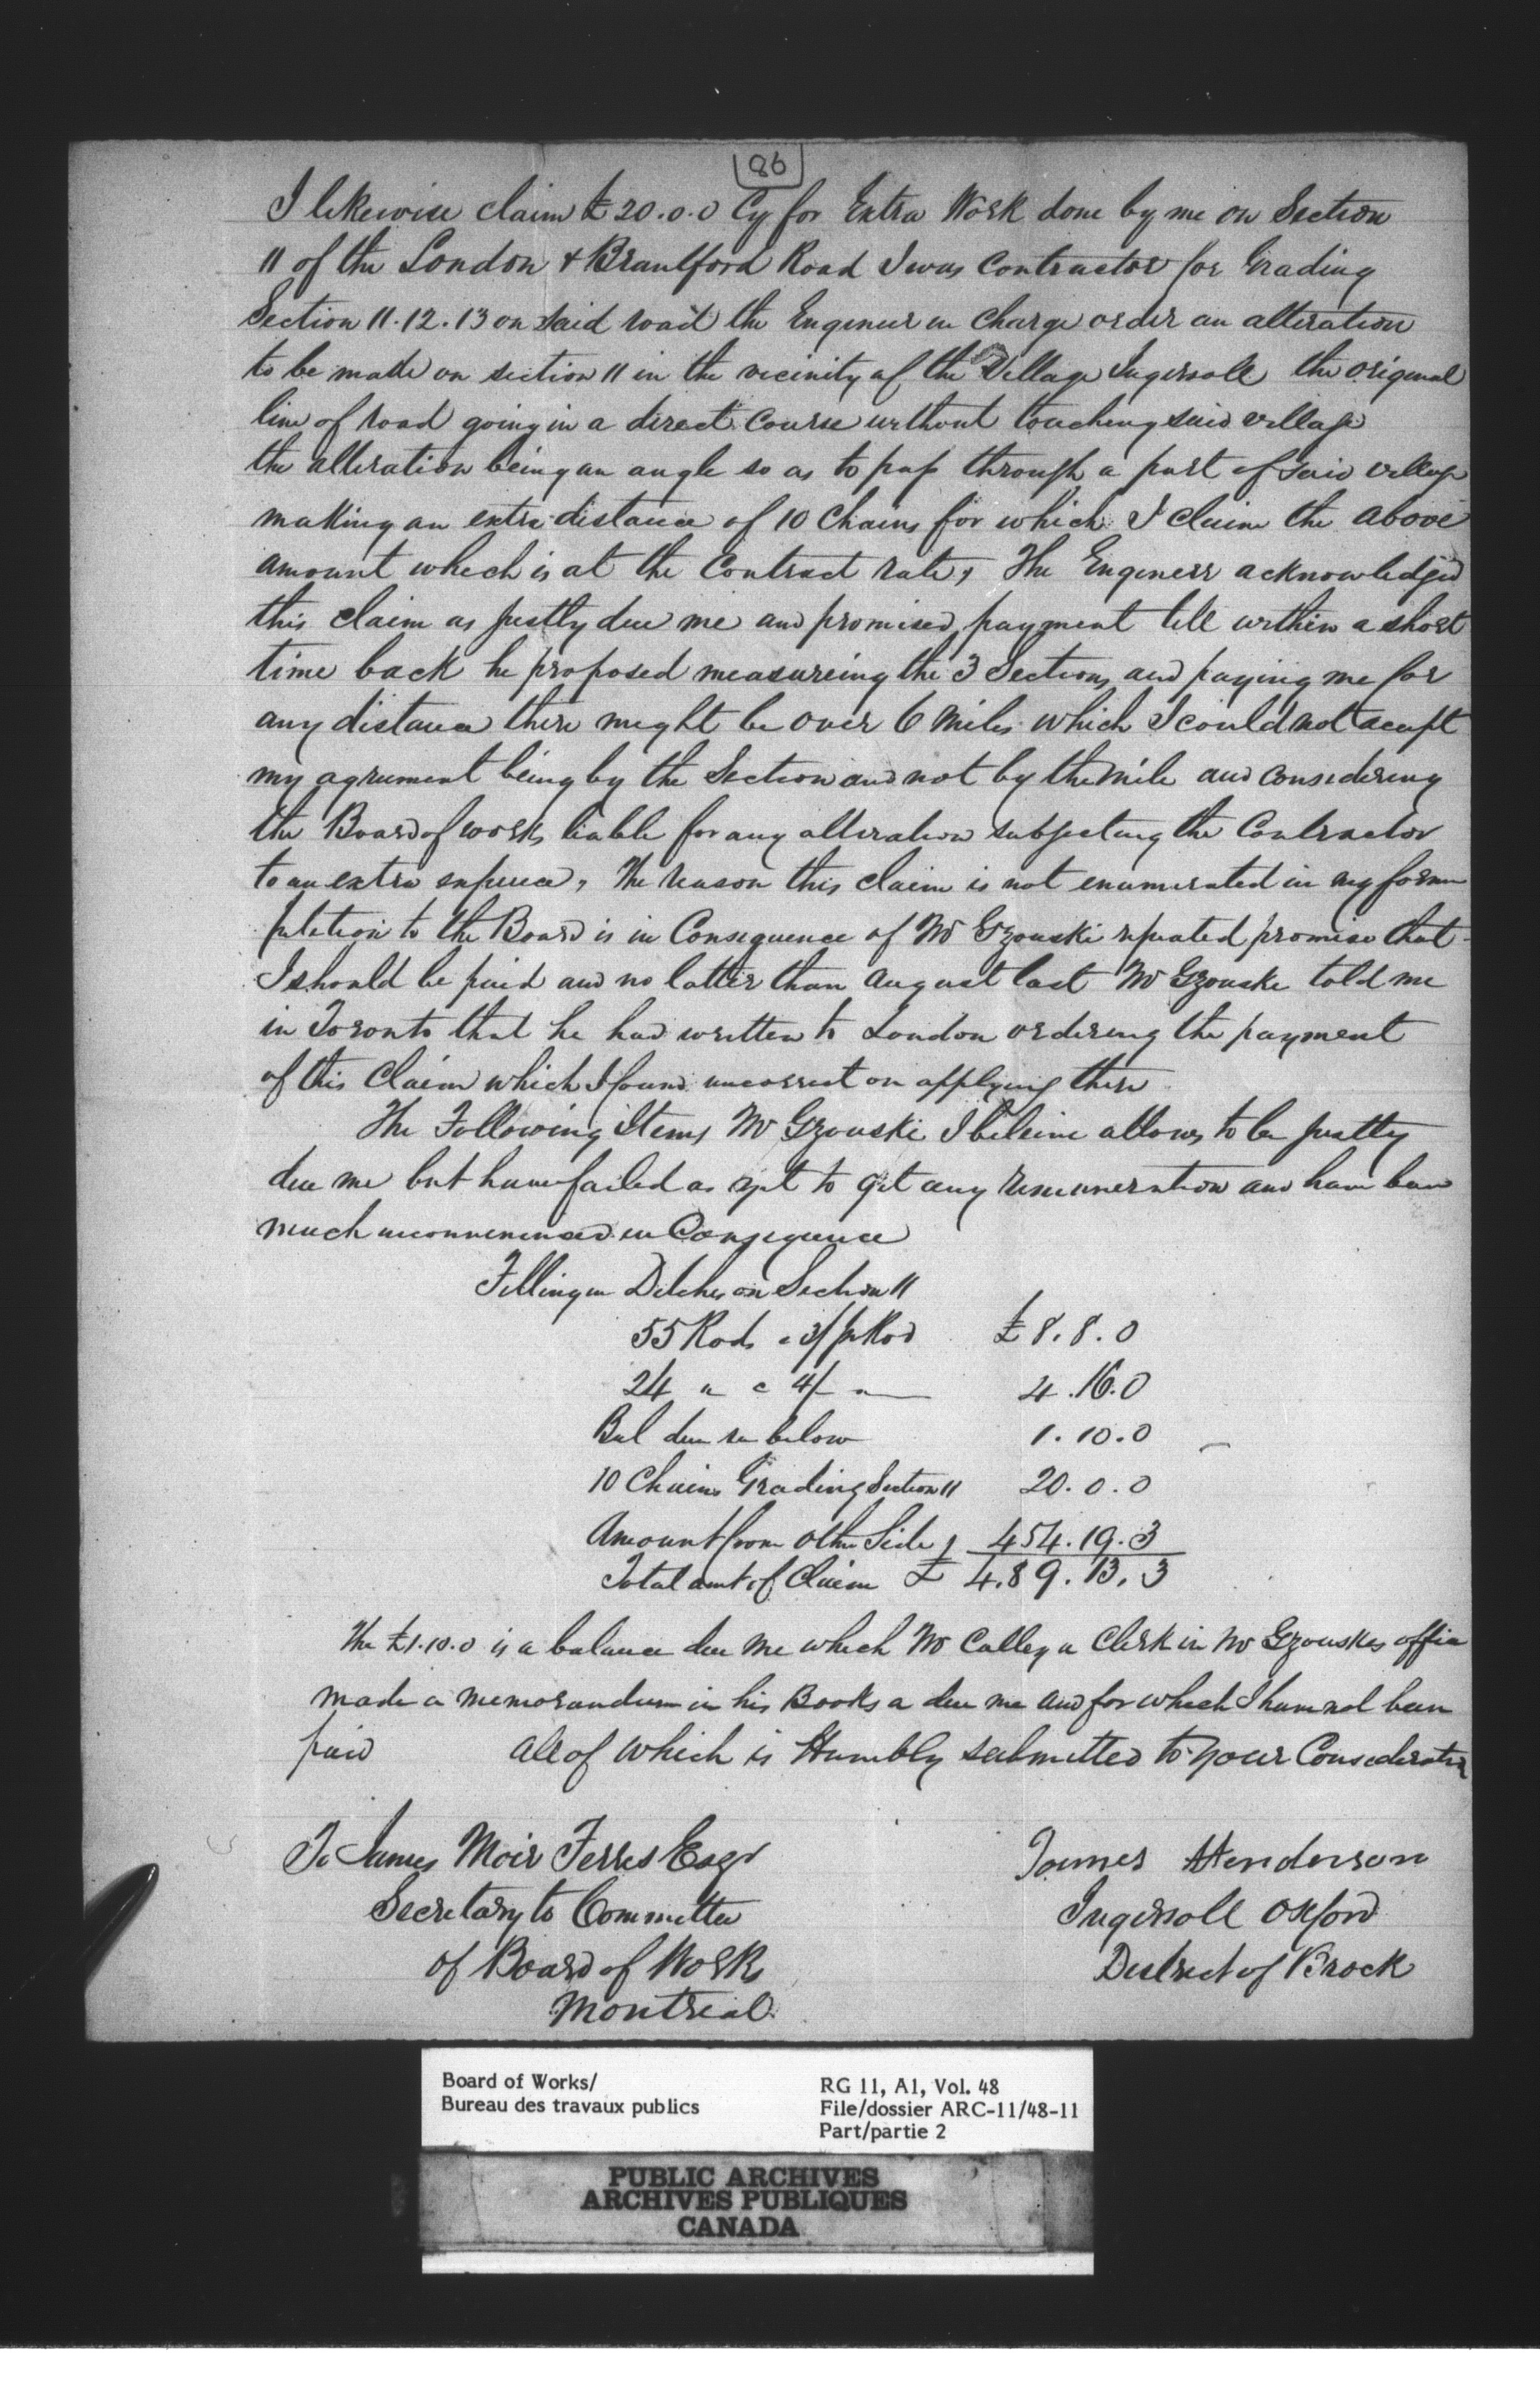 86
I likewise claim £20.0.0 Cy for Extra Work done by me on Section
11 of the London & Brantford Road I was Contractor for Grading
Section 11.12.13 on said road the Engineer in Charge order an alteration
to be made on section 11 in the vicinity of the Village Ingersoll the original
line of road going in a direct course without touching said village
the alteration being an angle so as to pass through a part of said village
making an extra distance of 10 Chains for which I claim the above
amount which is at the Contract rate, The Engineer acknowledged
this claim as justly due me and promised payment till within a short
time back he proposed measureing the 3 Sections and paying me for
any distance there might be over 6 miles which I could not accept
my agreement being by the Section and not by the mile and considering
the Board of works liable for any alteration subjecting the Contractor
to an extra expence, The reason this claim is not enumerated in my former
petition to the Board is in Consequence of Mr Gzouski repeated promise that
I should be paid and no latter than August last Mr Gzouske told me
in Toronto that he had written to London ordering the payment
of this Claim which I found uncorrect on applying there
The Following Items Mr Gzouski I beleive allows to be justly
due me but have failed as yet to get any remuneration and have been
much inconvenienced in Consequence
Filling in Ditches on Section 11
55 Rods a 3/ pr Rod £8.8.0
24 " a 4/ " 4.16.0
Bal due see below 1.10.0
10 Chains Grading Section 11 20.0.0
Amount from Other Side 454.19.3
Total amt of Claim £ 489.13.3
The £1.10.0 is a balance due me which Mr Calley a Clerk in Mr Gzouskes office
made a memorandum in his Books a due me and for which I have not been
paid All of which is Humbly submitted to your Consideration
To James Moir Ferres Esqr
Secretary to Committee
of Board of Works
Montreal
James Henderson
Ingersoll Oxford
District of Brock
Board of Works/
Bureau des travaux publics
RG 11, A1, Vol. 48
File/dossier ARC-11/48-11
Part/partie 2
PUBLIC ARCHIVES
ARCHIVES PUBLIQUES
CANADA